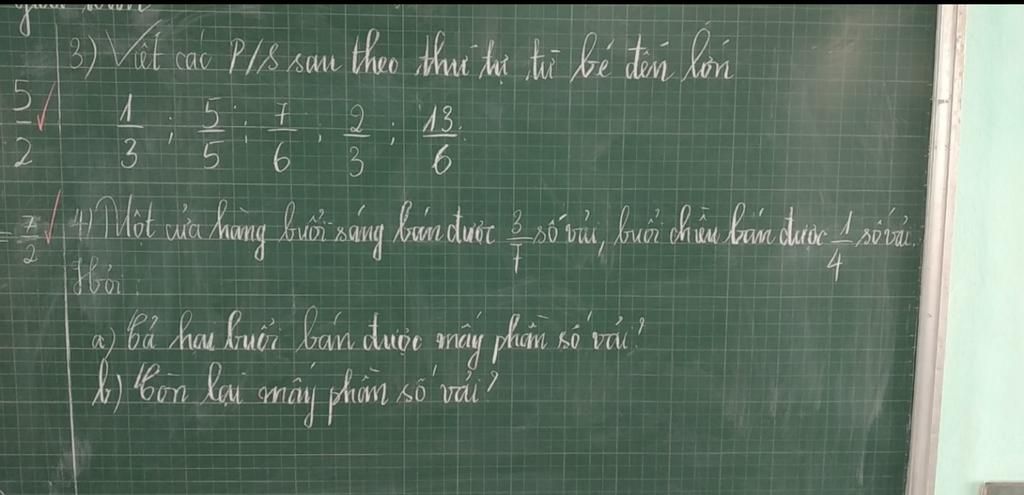 3) Viết các P/S sau theo thứ tự từ bé đến lớn
5/2 1/3 ; 5/5 ; 7/6 ; 2/3 ; 13/6
= 7/2 4) Một cửa hàng buổi sáng bán được 3/7 số vải, buổi chiều bán được 1/4 số vải.
Hỏi:
a) Cả hai buổi bán được mấy phần số vải?
b) Còn lại mấy phần số vải?